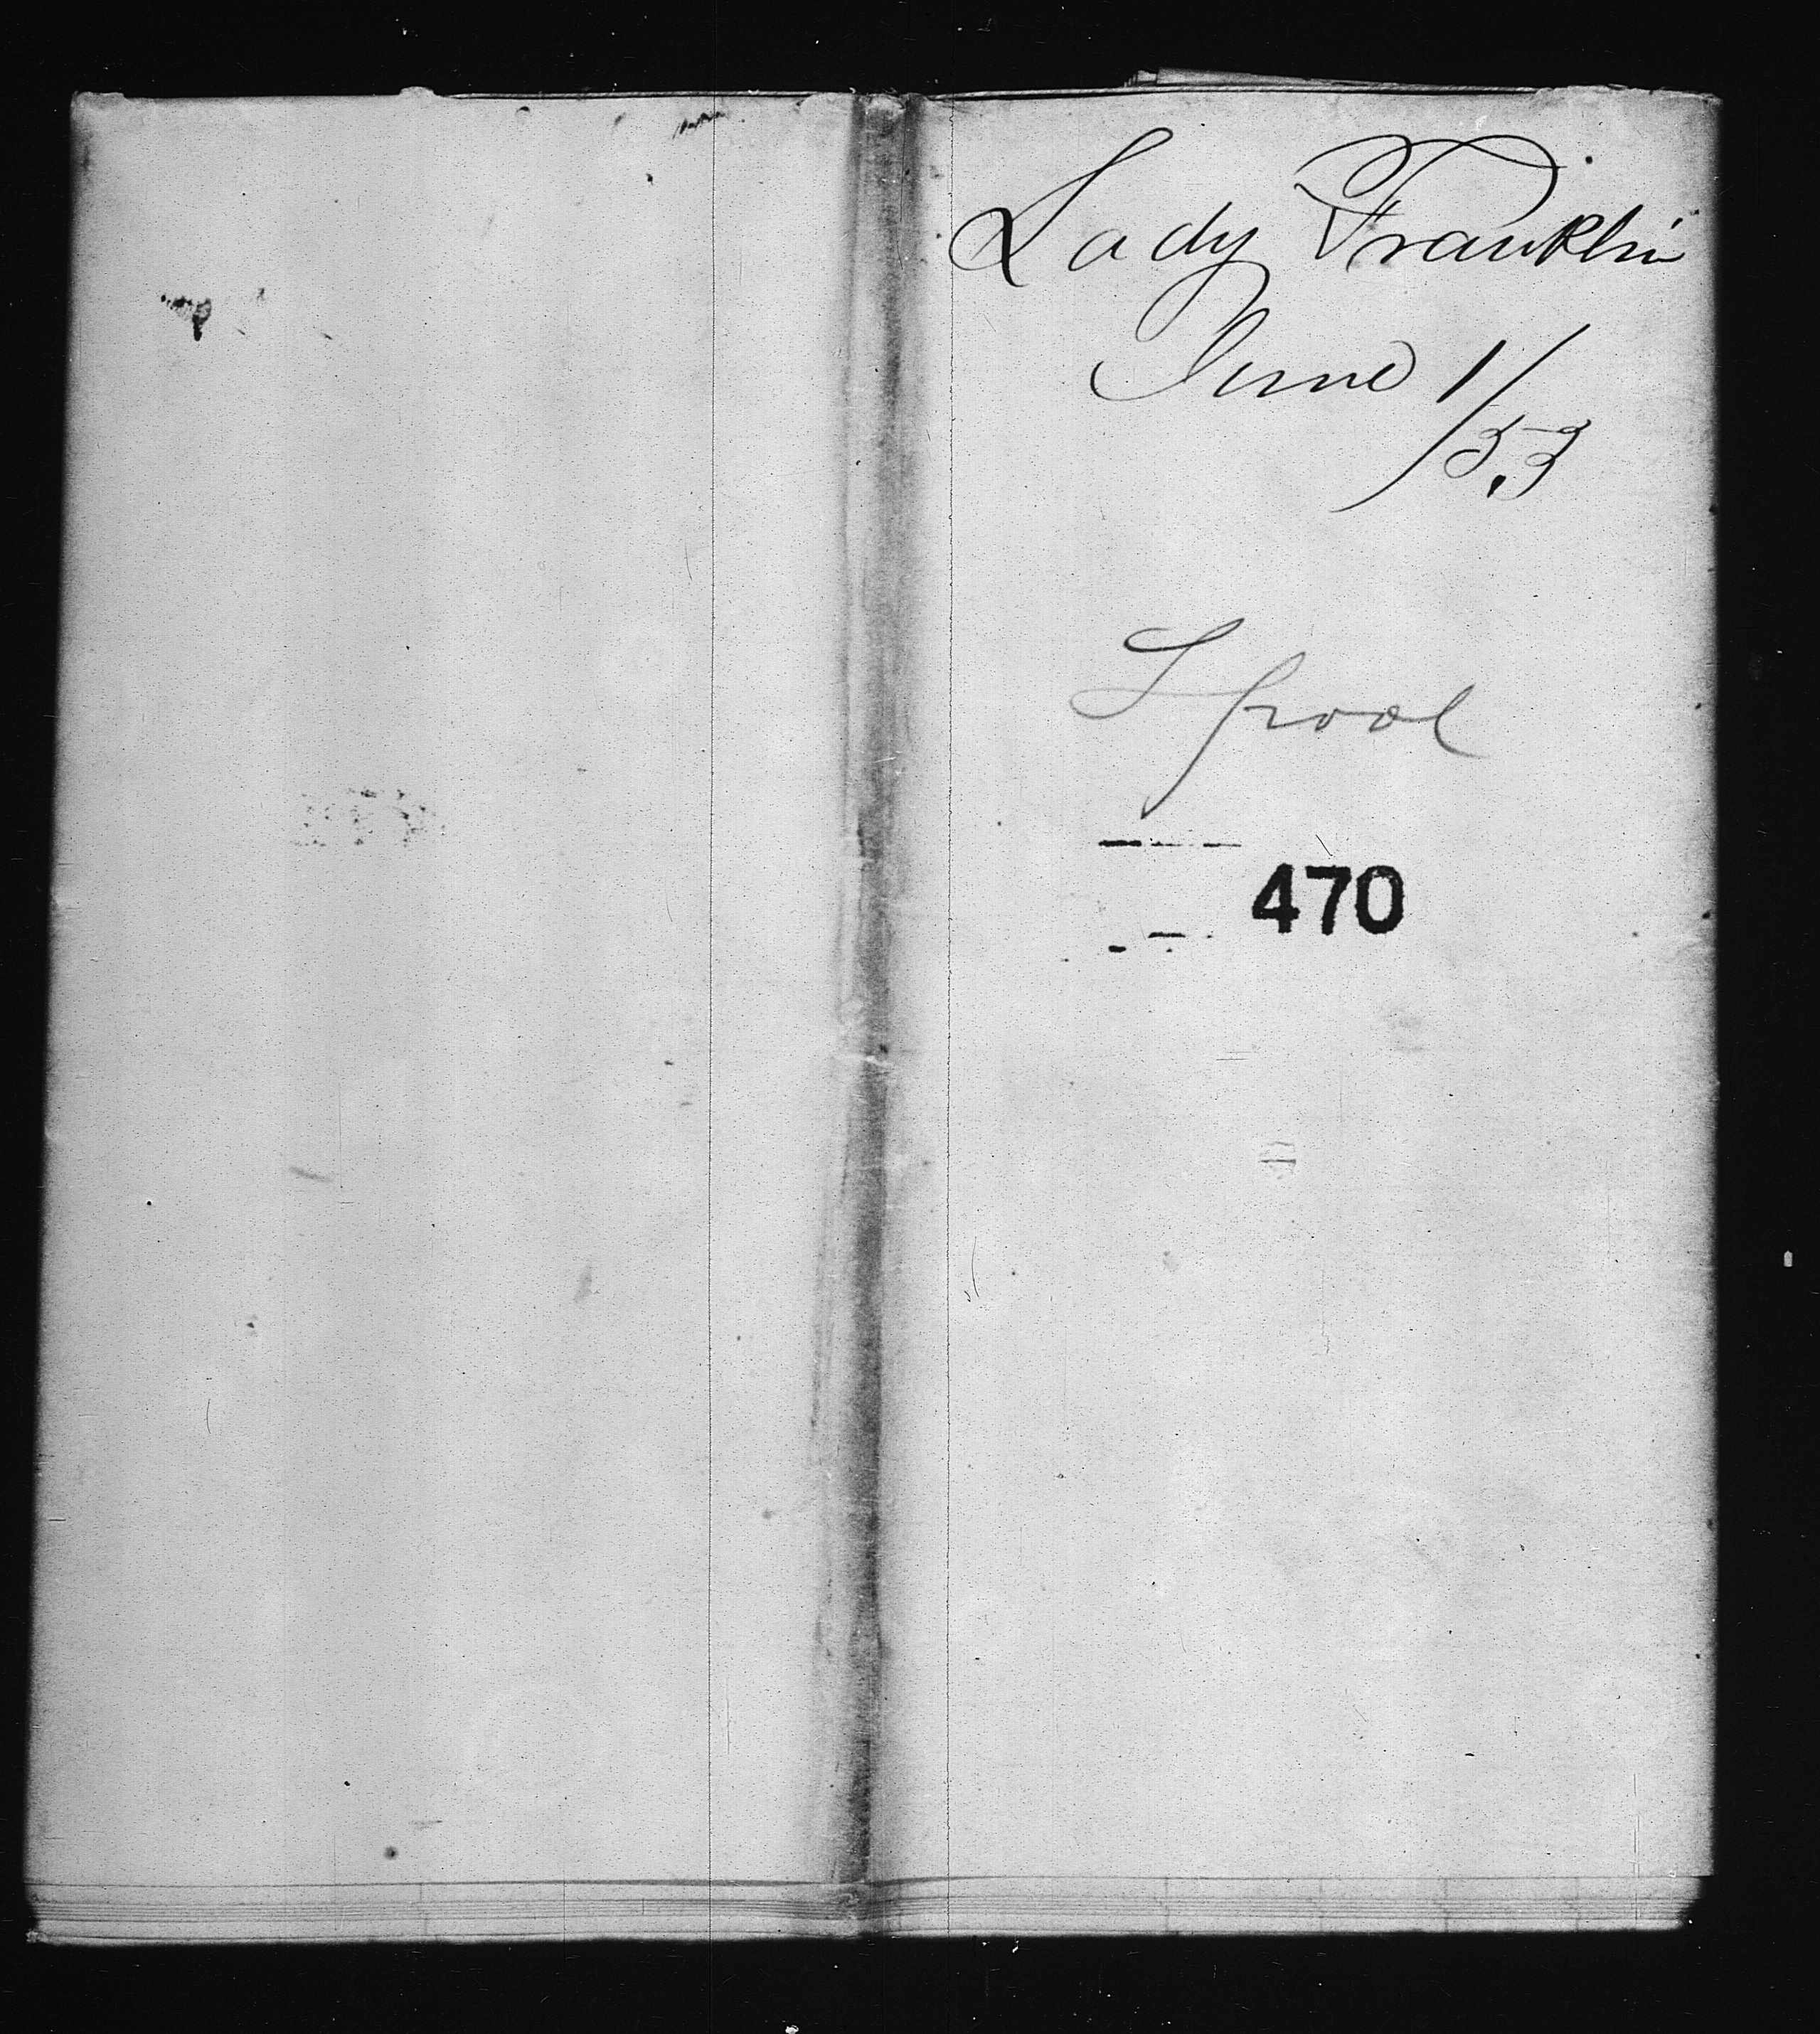 Lady Franklin
June 1/
53
Lpool
470